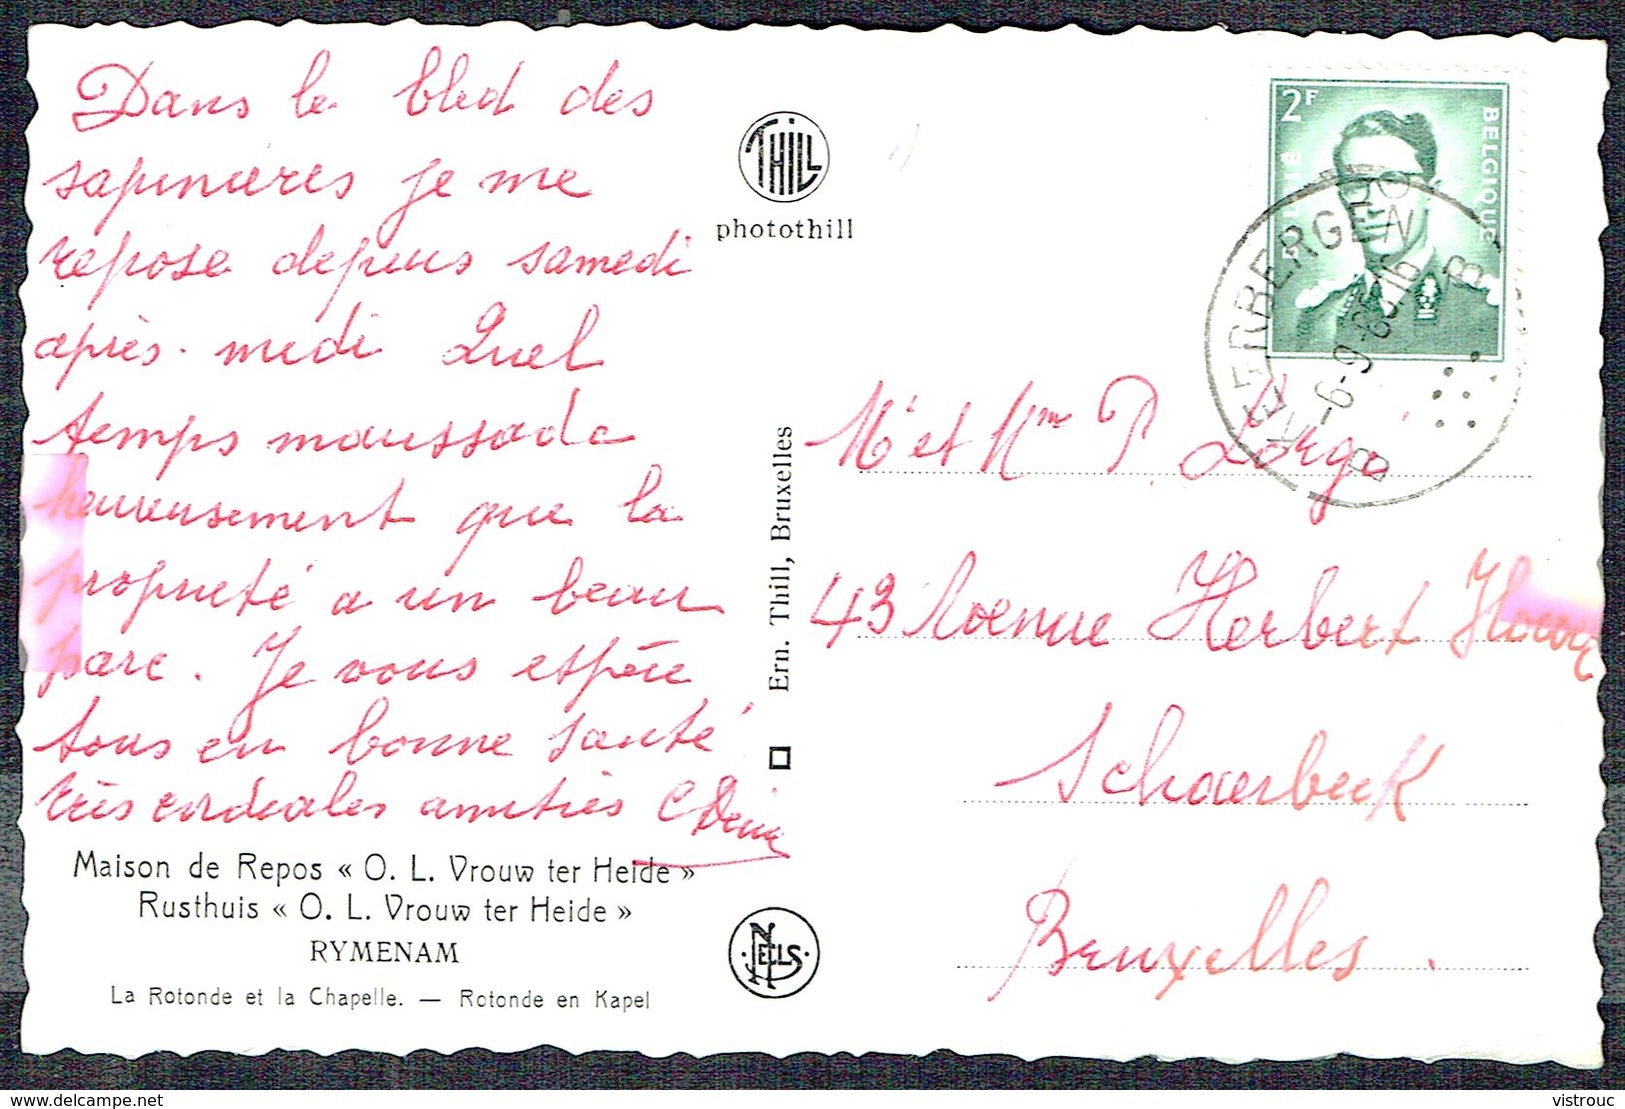 Dans le bled des
sapinières je me
repose depuis samedi
après-midi Quel
temps maussade
heureusement que la
propriété a un beau
parc. Je vous espère
tous en bonne santé
très cordiales amitiés
Maison de Repos « O. L. Vrouw ter Heide »
Rusthuis « O. L. Vrouw ter Heide »
RYMENAM
La Rotonde et la Chapelle. — Rotonde en Kapel
THILL
photothill
Ern. Thill, Bruxelles
NELS
2F
BELGIË
BELGIQUE
KEERBERGEN
-6-9-63 16
B B
Mr et Mme P. Lorge
43 Avenue Herbert Hoover
Schaerbeek
Bruxelles.
delcampe.net
vistrouc